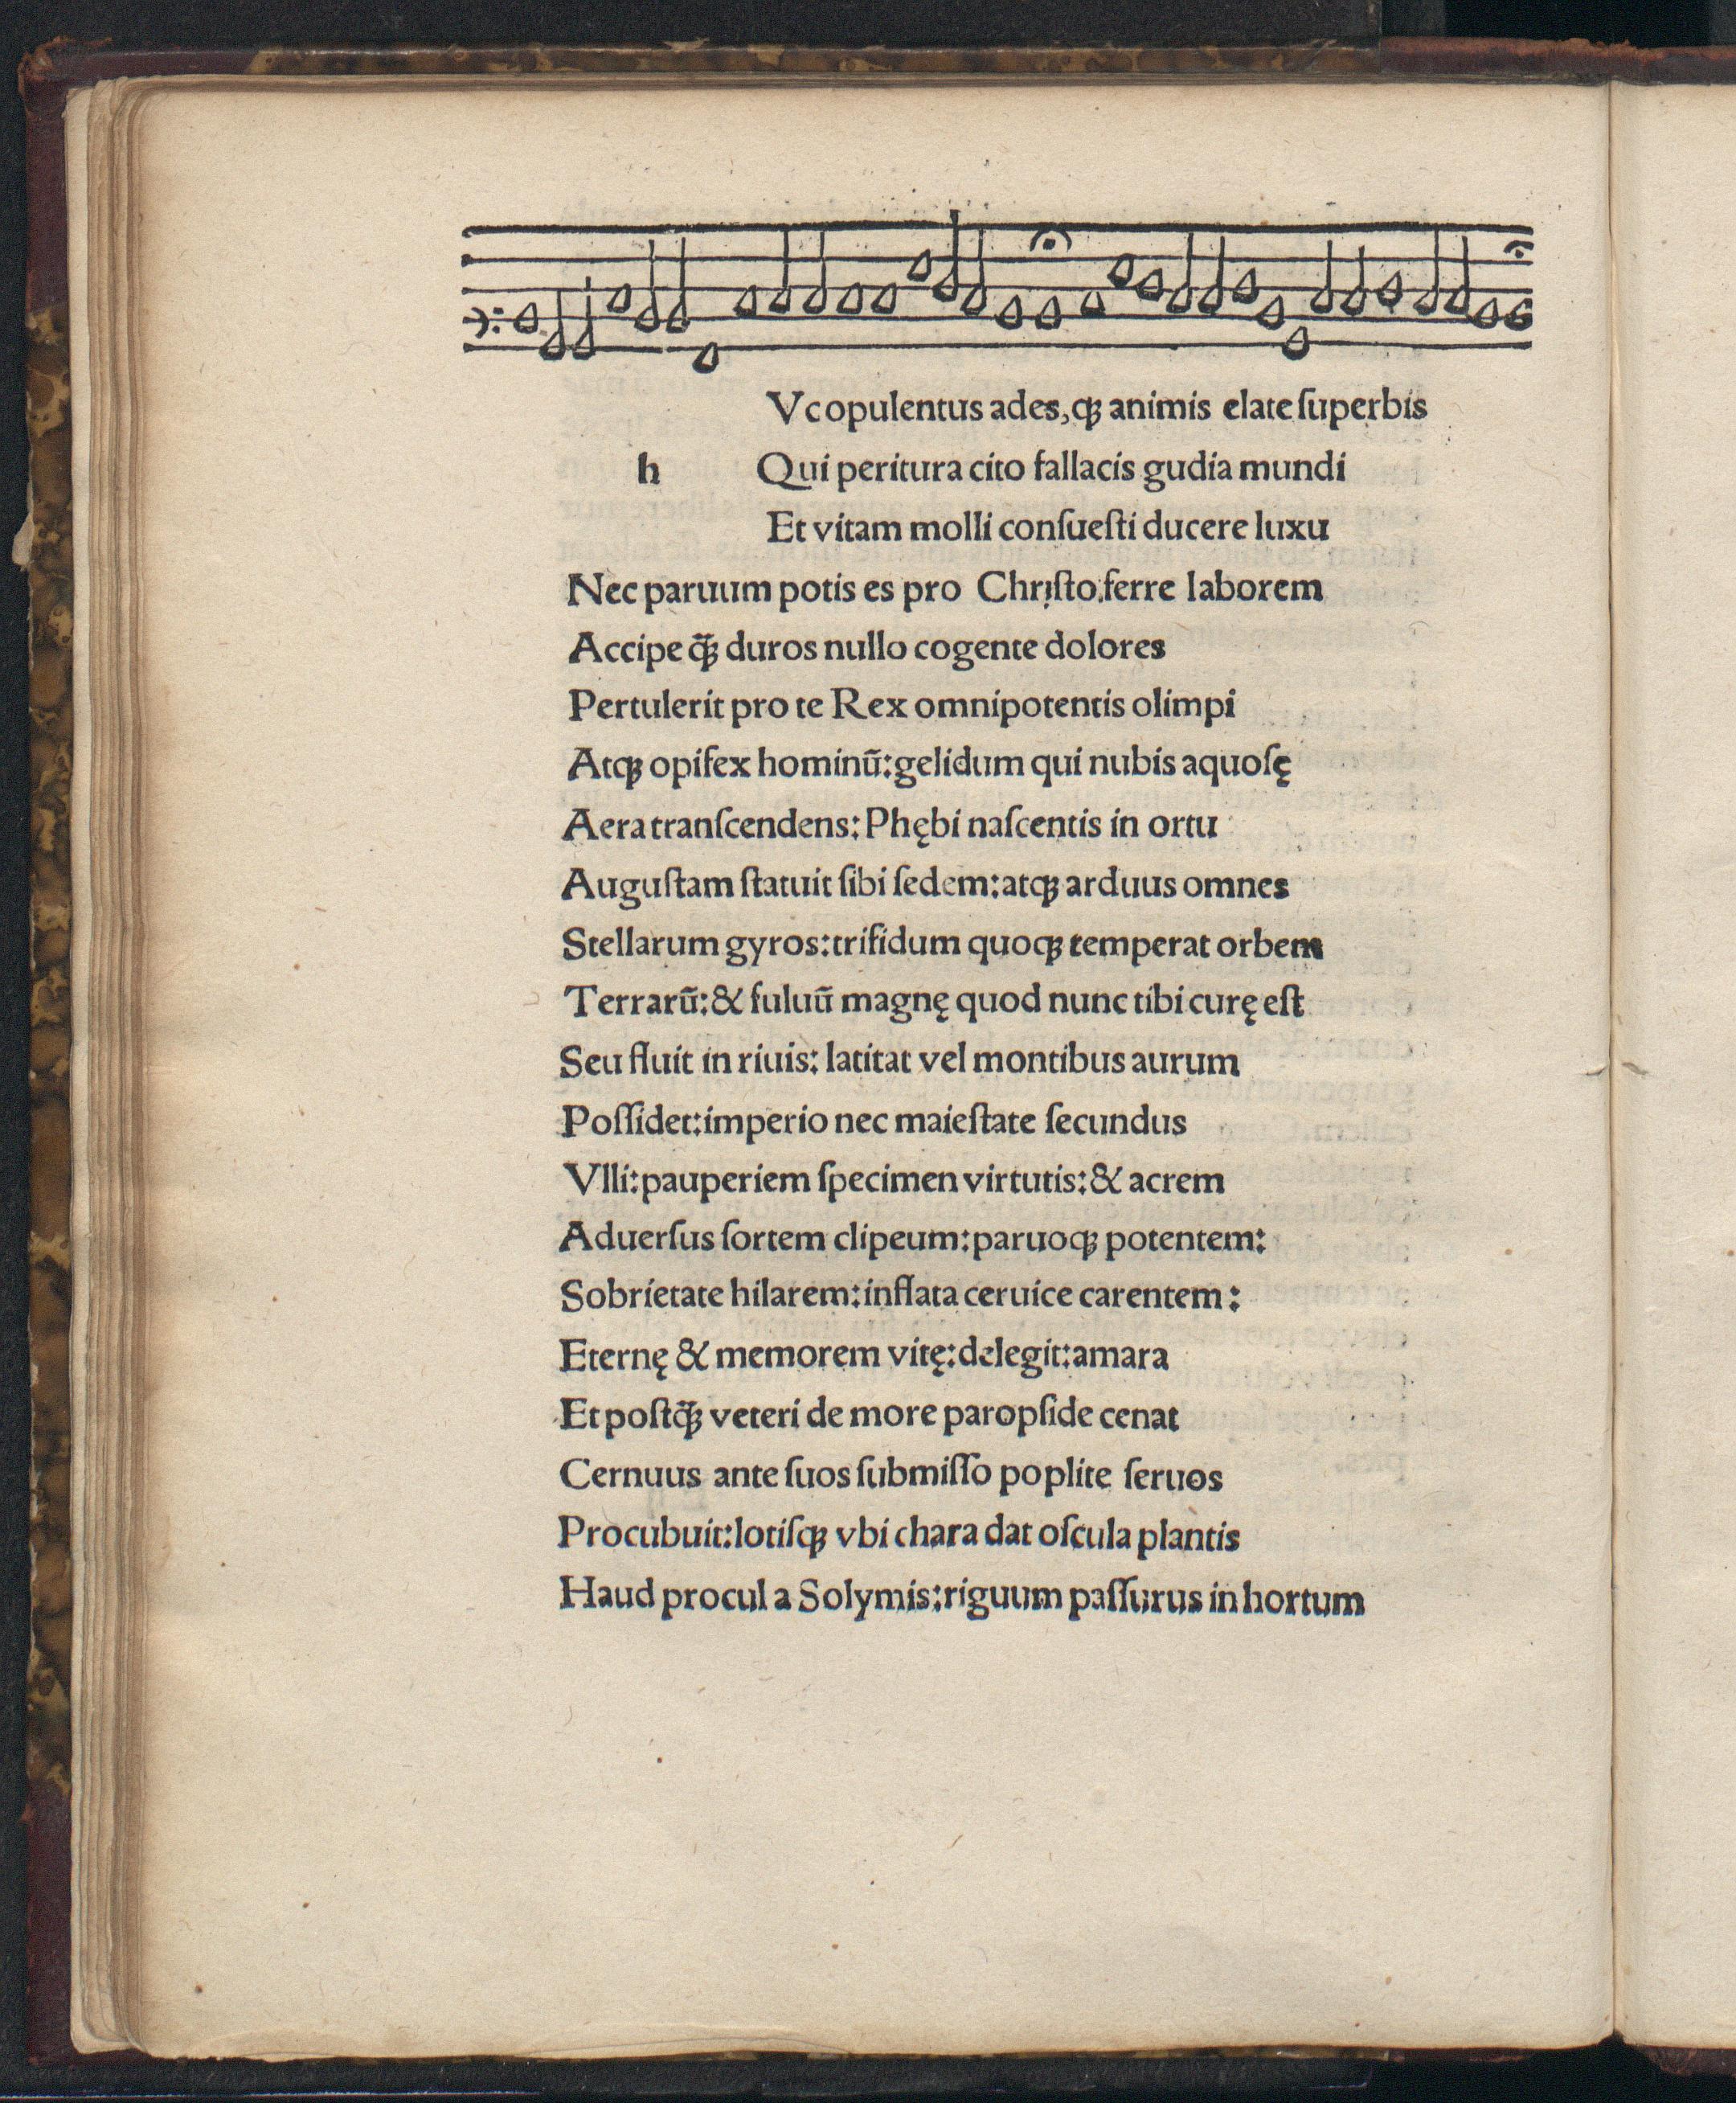 Vcopulentus ades,qꝫ animis elate ſuperbis
h Qui peritura cito fallacis gudia mundi
Et vitam molli conſueſti ducere luxu
Nec paruum potis es pro Chriſto.ferre laborem
Accipe q̃ꝫ duros nullo cogente dolores
Pertulerit pro te Rex omnipotentis olimpi
Atqꝫ opifex hominũ:gelidum qui nubis aquoſę
Aera tranſcendens:Phębi naſcentis in ortu
Auguſtam ſtatuit ſibi ſedem:atqꝫ arduus omnes
Stellarum gyros:trifidum quoqꝫ temperat orbem
Terrarũ:& fuluũ magnę quod nunc tibi curę eſt
Seu fluit in riuis: latitat vel montibus aurum
Poſſidet:imperio nec maieſtate ſecundus
Vlli:pauperiem ſpecimen virtutis:& acrem
Aduerſus ſortem clipeum:paruoqꝫ potentem:
Sobrietate hilarem:inflata ceruice carentem:
Eternę & memorem vitę:delegit:amara
Et poſtq̃ꝫ veteri de more paropſide cenat
Cernuus ante ſuos ſubmiſſo poplite ſeruos
Procubuit:lotiſqꝫ vbi chara dat oſcula plantis
Haud procul a Solymis:riguum paſſurus in hortum